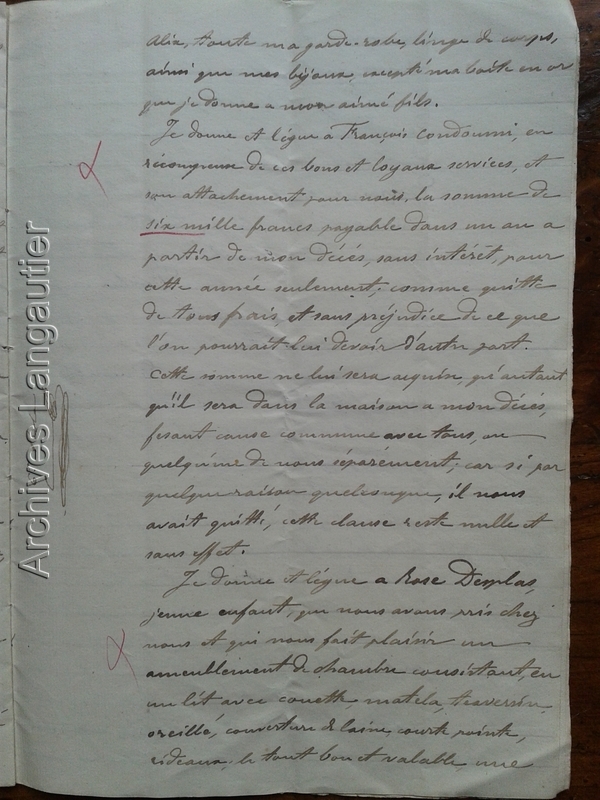 alix, toute ma garde-robe, linge de corps,
ainsi que mes bijoux, excepté ma boîte en or
que je donne a mon aimé fils.
Je donne et légue a François Condoumi, en
récompense de ces bons et loyaux services, et
son attachement pour nous, la somme de
six mille francs payable dans un an a
partir de mon décés, sans intérêt, pour
cette année seulement; comme quitte
de tous frais, et sans préjudice de ce que
l'on pourrait lui devoir d'autre part.
Cette somme ne lui sera acquise, qu'autant
qu'il sera dans la maison a mon décés,
fesant cause commune avec tous, ou
quelqu'une de nous séparément; car si par
quelque raison quelconque, il nous
avait quitté, cette clause reste nulle et
sans effet.
Je donne et légue a Rose Desplas,
jeune enfant, que nous avons pris chez
nous et qui nous fait plaisir un
ameublement de chambre consistant, en
un lit avec couette matela, traversin,
oreillé, couverture de laine, courte pointe,
rideaux, le tout bon et valable, une
Archives Langautier